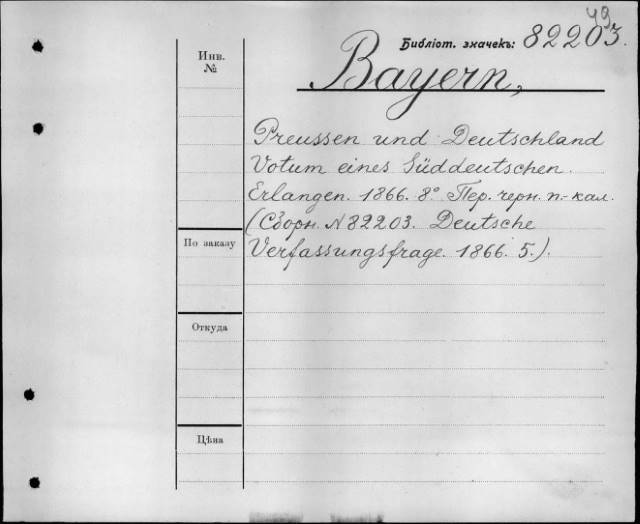 49
Библіот. значекъ: 82203.
Инв.
№
Bayern,
Preussen und Deutschland
Votum eines Süddeutschen.
Erlangen. 1866. 8° Пер. черн. п.-кал.
(Сборн. N 82203. Deutsche
По заказу
Verfassungsfrage. 1866. 5.).
Откуда
Цѣна